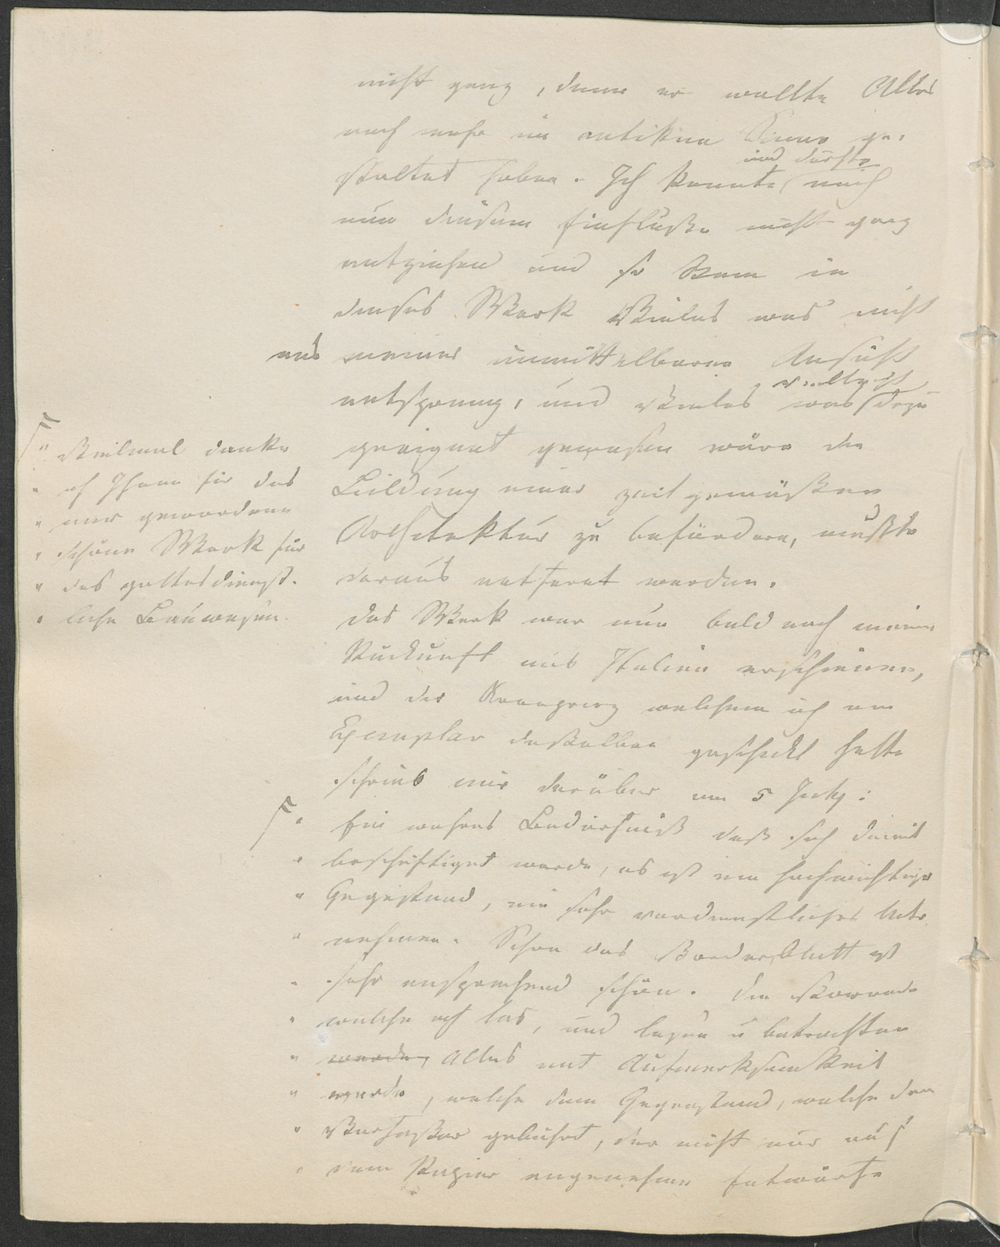 nicht ganz, denn er wollte Alles
noch mehr im antiken Sinne ge-
staltet haben. Ich konnte und durfte mich
nun diesem Einflusse nicht ganz
entziehen und so kam in
dieses Werk Vieles was nicht
aus meiner unmittelbaren Ansicht
entsprang, und Vieles was vielleicht dazu
geeignet gewesen wäre die
Bildung einer zeitgemäßen
Architektur zu befördern, mußte
daraus entfernt werden.
Das Werk war nun bald nach meiner
Rückkunft aus Italien erschienen,
und der Kronprinz welchem ich ein
Exemplar desselben geschickt hatte
schrieb mir darüber am 5
" Vielmal danke
" ich Ihnen für das
" mir gewordene
" schöne Werk für
" das gottesdienst-
" liche Bauwesen.
" Ein wahres Bedürfniß daß sich damit
" beschäftiget werde, es ist ein hochwichtiger
" Gegenstand, ein sehr verdienstliches Unter-
" nehmen. Schon das Vorderblatt ist
" sehr ansprechend schön. Die Vorrede
" welche ich las, und lesen u betrachten
" werde, Alles mit Aufmerksamkeit
" werde, welche dem Gegenstand, welche dem
" Verfasser gebührt, der nicht nur auf
" dem Papier angenehme Entwürfe